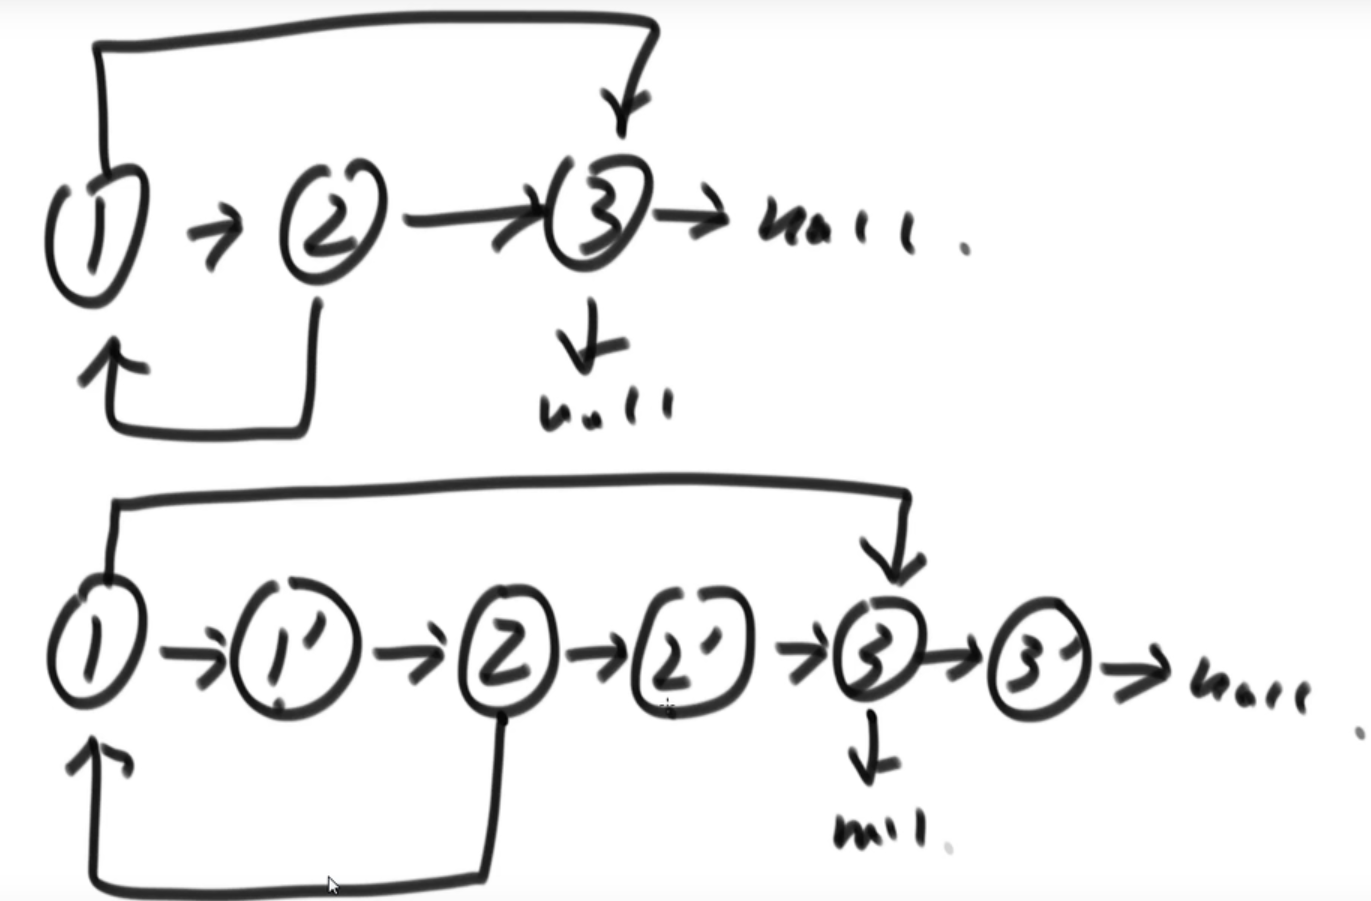 1 2 3 null.
null
1 1' 2 2' 3 3' null.
null.